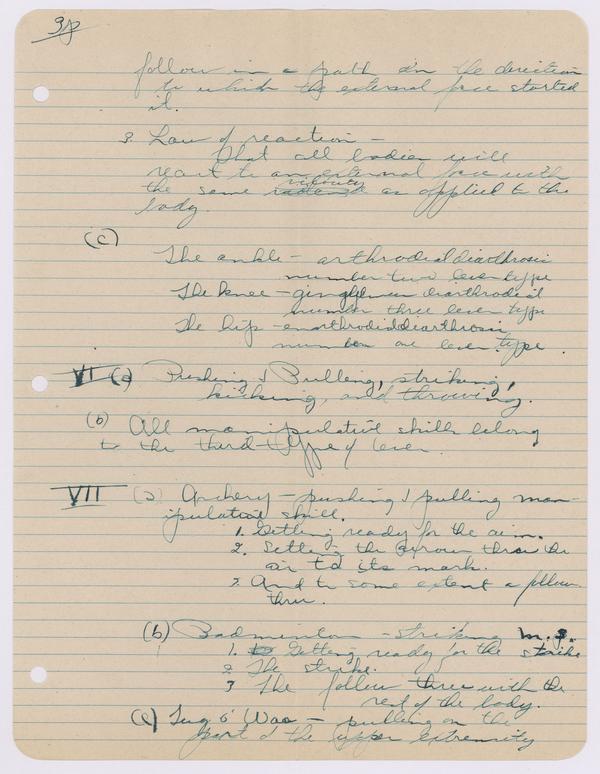 follow in a path in the direction
to which the external force started
it.
3. Law of reaction -
That all bodies will
react to an external force with
velocity
the same as applied to the
body.
(c)
The ankle - arthrodial diarthrosis
number two lever type
The knee - ginglymus diarthrodial
number three lever type
The hip - enarthrodial diarthrosis
number one lever type.
VI (a) Pushing & Pulling, striking,
kicking, and throwing.
(b) All manipulative skills belong
to the third type of lever.
VII (a) Archery - pushing & pulling man-
ipulative skill.
1. Getting ready for the aim.
2. Setting the arrow thru the
air to its mark.
3. And to some extent a follow
thru.
(b) Badminton - striking m.s.
1. Getting ready for the strike
2. The strike.
3 The follow thru with the
rest of the body.
(c) Tug o' War - pulling on the
part of the upper extremity